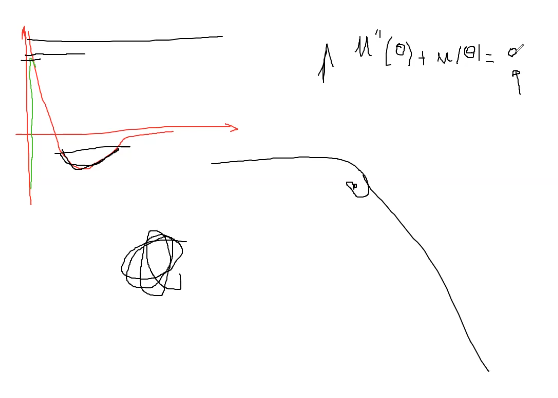 u''(θ) + u(θ) = α